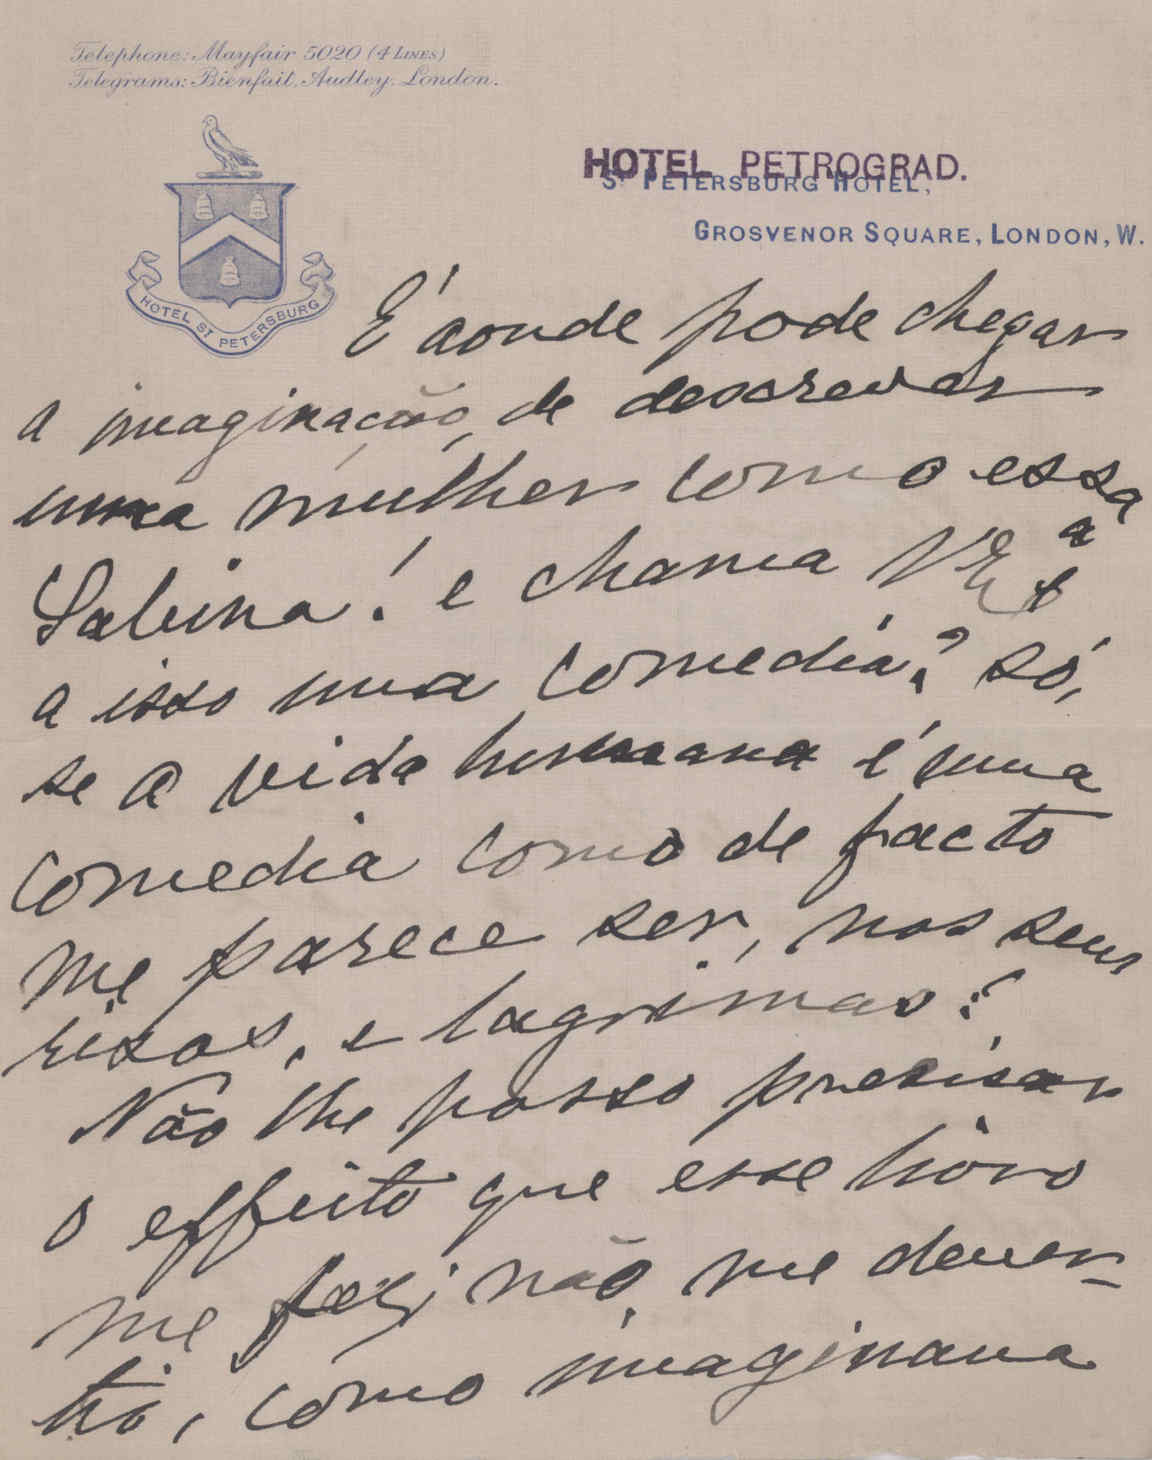 Telephone: Mayfair 5020 (4 Lines)
Telegrams: Bienfait, Audley, London.
HOTEL PETROGRAD.
St Petersburg Hotel,
Grosvenor Square, London, W.
HOTEL ST PETERSBURG
É aonde pode chegar
a imaginação, de descrever
uma mulher como essa
Sabina! e chama V. Exª
a isso uma comedia? só,
se a vida humana é uma
comedia como de facto
me parece ser, nos seus
risos, e lagrimas?
Não lhe posso precisar
o effeito que esse livro
me fez; não me dever-
tio, como imaginava